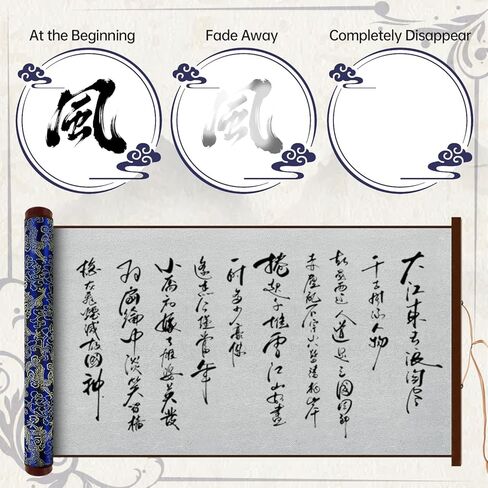 At the Beginning
Fade Away
Completely Disappear
風
風
大江東去浪淘尽
千古風流人物
故壘西邊人道是三國周郎
赤壁亂石穿空驚濤拍岸
捲起千堆雪江山如畫
一时多少豪傑
遙想公瑾當年
小喬初嫁了雄姿英發
羽扇綸巾談笑間檣
櫓灰飛煙滅故國神